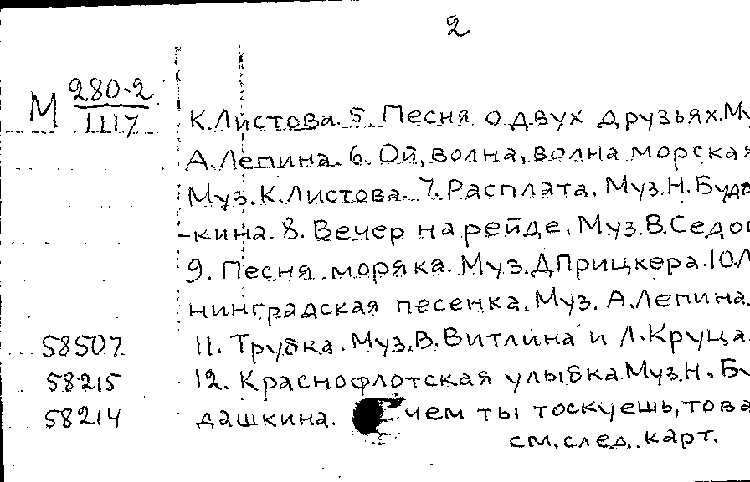 2
М 280-2
1117
К. Листова. 5. Песня о двух друзьях. М
А. Лепина. 6. Ой, волна, волна морская
Муз. К. Листова. 7. Расплата. Муз. Н. Буда
-кина. 8. Вечер на рейде. Муз. В. Седо
9. Песня моряка. Муз. Д. Прицкера. 10. Л
нинградская песенка. Муз. А. Лепина.
58507 11. Трубка. Муз. В. Витлина и Л. Круца.
58215 12. Краснофлотская улыбка Муз. Н. Бу
58214 дашкина. чем ты тоскуешь, това
см. след. карт.